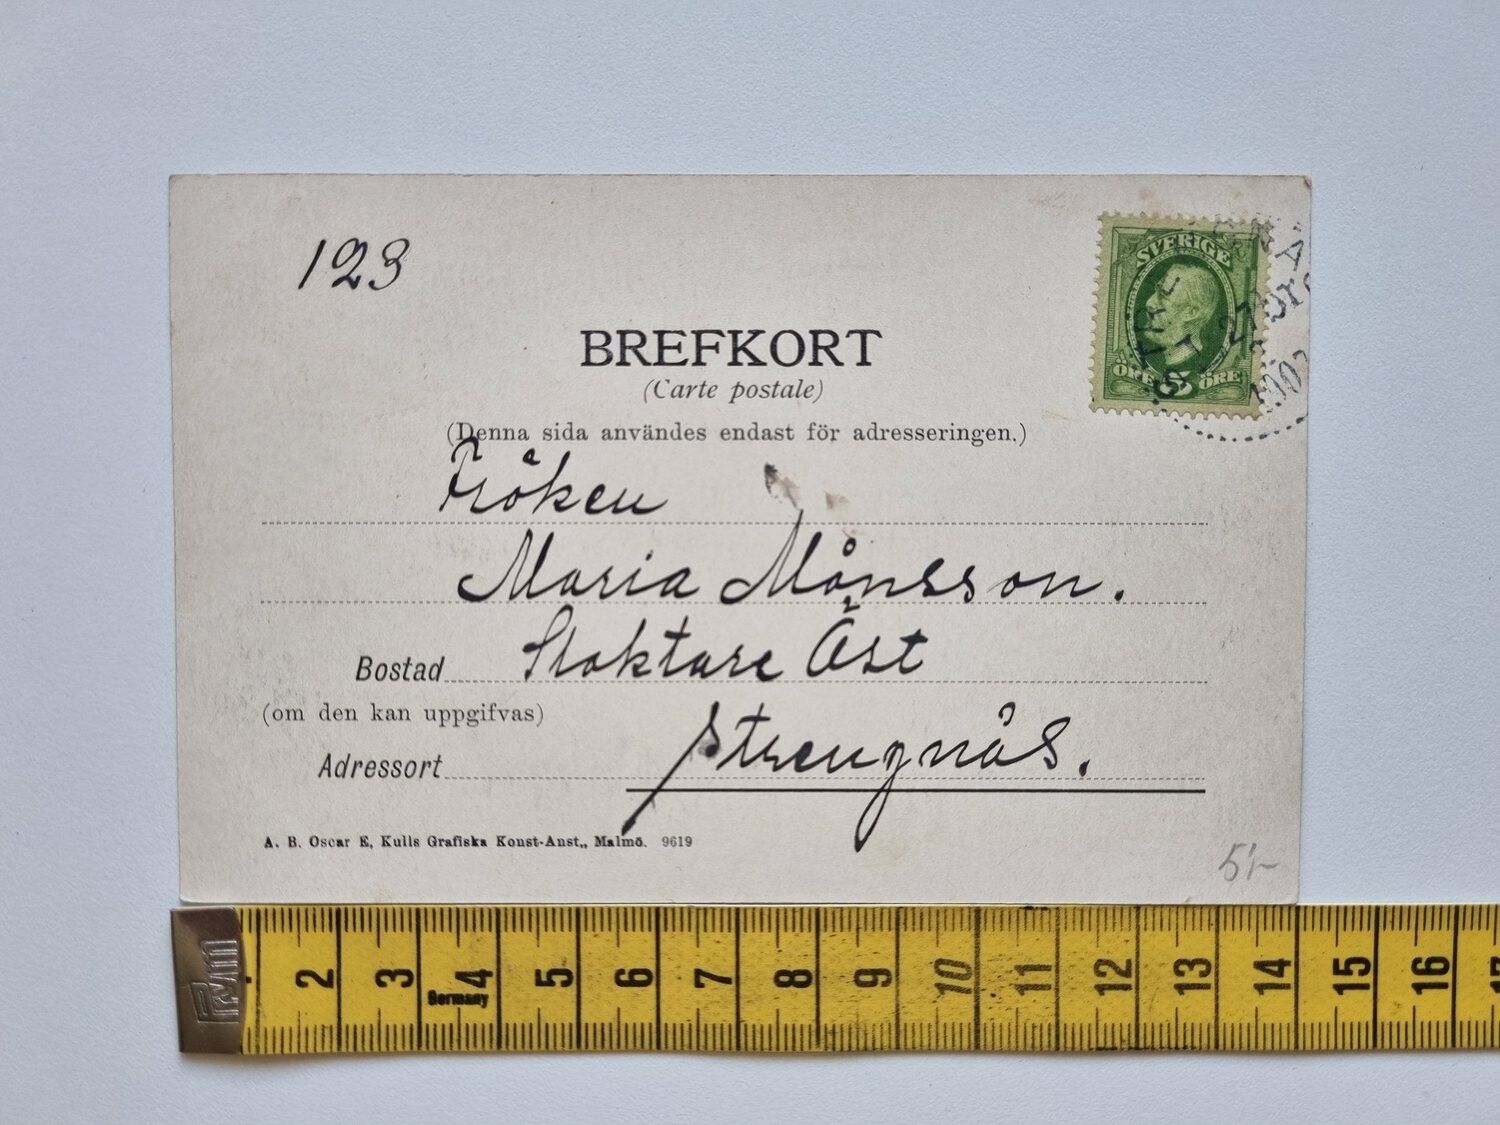 123
SVERIGE
ÖRE 5 ÖRE
BREFKORT
(Carte postale)
(Denna sida användes endast för adresseringen.)
Fröken
Maria Månsson.
Bostad Stoktare Öst
(om den kan uppgifvas)
Adressort Strengnäs.
A. B. Oscar E, Kulls Grafiska Konst-Anst,, Malmö. 9619
5:-
2 3 4 5 6 7 8 9 10 11 12 13 14 15 16 17
Germany